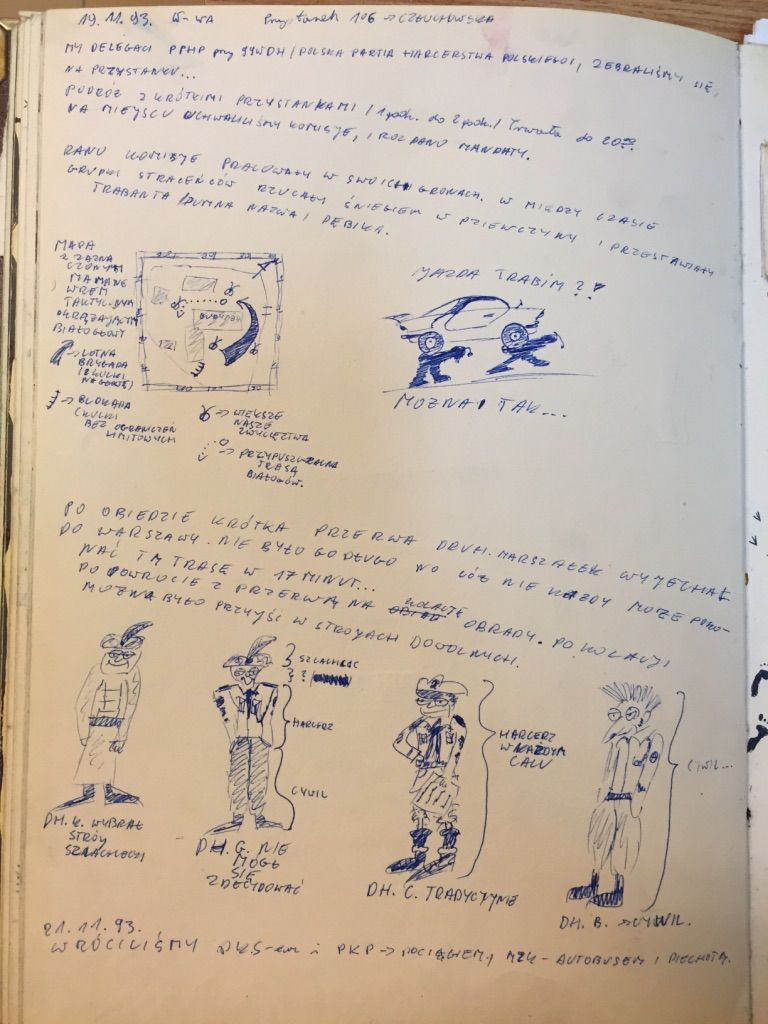 19.11.93. W-WA Przystanek 106 → CZŁUCHOWSKA
MY DELEGACI PPHP przy 99WDH /POLSKA PARTIA HARCERSTWA POLSKIEGO/, ZEBRALIŚMY SIĘ,
NA PRZYSTANKU...
PODRÓŻ Z KRÓTKIMI PRZYSTANKAMI /1 godz. do 2 godz./ trwała do 20⁰⁰
NA MIEJSCU UCHWALILIŚMY KOMISJE, I ROZDANO MANDATY.
RANO KOMISJE PRACOWAŁY W SWOICH GRONACH. W MIĘDZY CZASIE
GRUPKI STRACEŃCÓW RZUCAŁY ŚNIEGIEM W DZIEWCZYNY I PRZESTAWIAŁY
TRABANTA /DUMNA NAZWA/ DĘBIKA.
MAPA
Z ZAZNA
CZONYMI
MANEWREM
TAKTYCZNYM
OKRĄŻAJĄCYM
BIAŁOGŁOWY
→ LOTNA
BRYGADA
(2 KULKI
NA GŁOWĘ)
→ BLOKADA
(KULKI
BEZ OGRANICZEŃ
LIMITOWYCH
→ WIĘKSZE
NASZE
ZWYCIĘSTWA
→ PRZYPUSZCZALNA
TRASA
BIAŁOGŁÓW.
JAZDA TRABIM??
MOŻNA I TAK...
PO OBIEDZIE KRÓTKA PRZERWA DRUH. MARSZAŁEK WYJECHAŁ
DO WARSZAWY. NIE BYŁO GO DŁUGO NO CÓŻ NIE KAŻDY MOŻE POKO-
NAĆ TĄ TRASĘ W 17 MINUT...
PO POWROCIE Z PRZERWĄ NA KOLACJĘ OBRADY. PO KOLACJI
MOŻNA BYŁO PRZYJŚĆ W STROJACH DOWOLNYCH.
SZLACHCIC
?
HARCERZ
CYWIL
HARCERZ
W KAŻDYM
CALU
CYWIL...
DH. K. WYBRAŁ
STRÓJ
SZLACHECKI
DH. G. NIE
MÓGŁ
SIĘ
ZDECYDOWAĆ
DH. C. TRADYCYJNIE
DH. B. → CYWIL.
21.11.93.
WRÓCILIŚMY PKS-em i PKP → POCIĄGIEM, MZK - AUTOBUSEM I PIECHOTĄ.